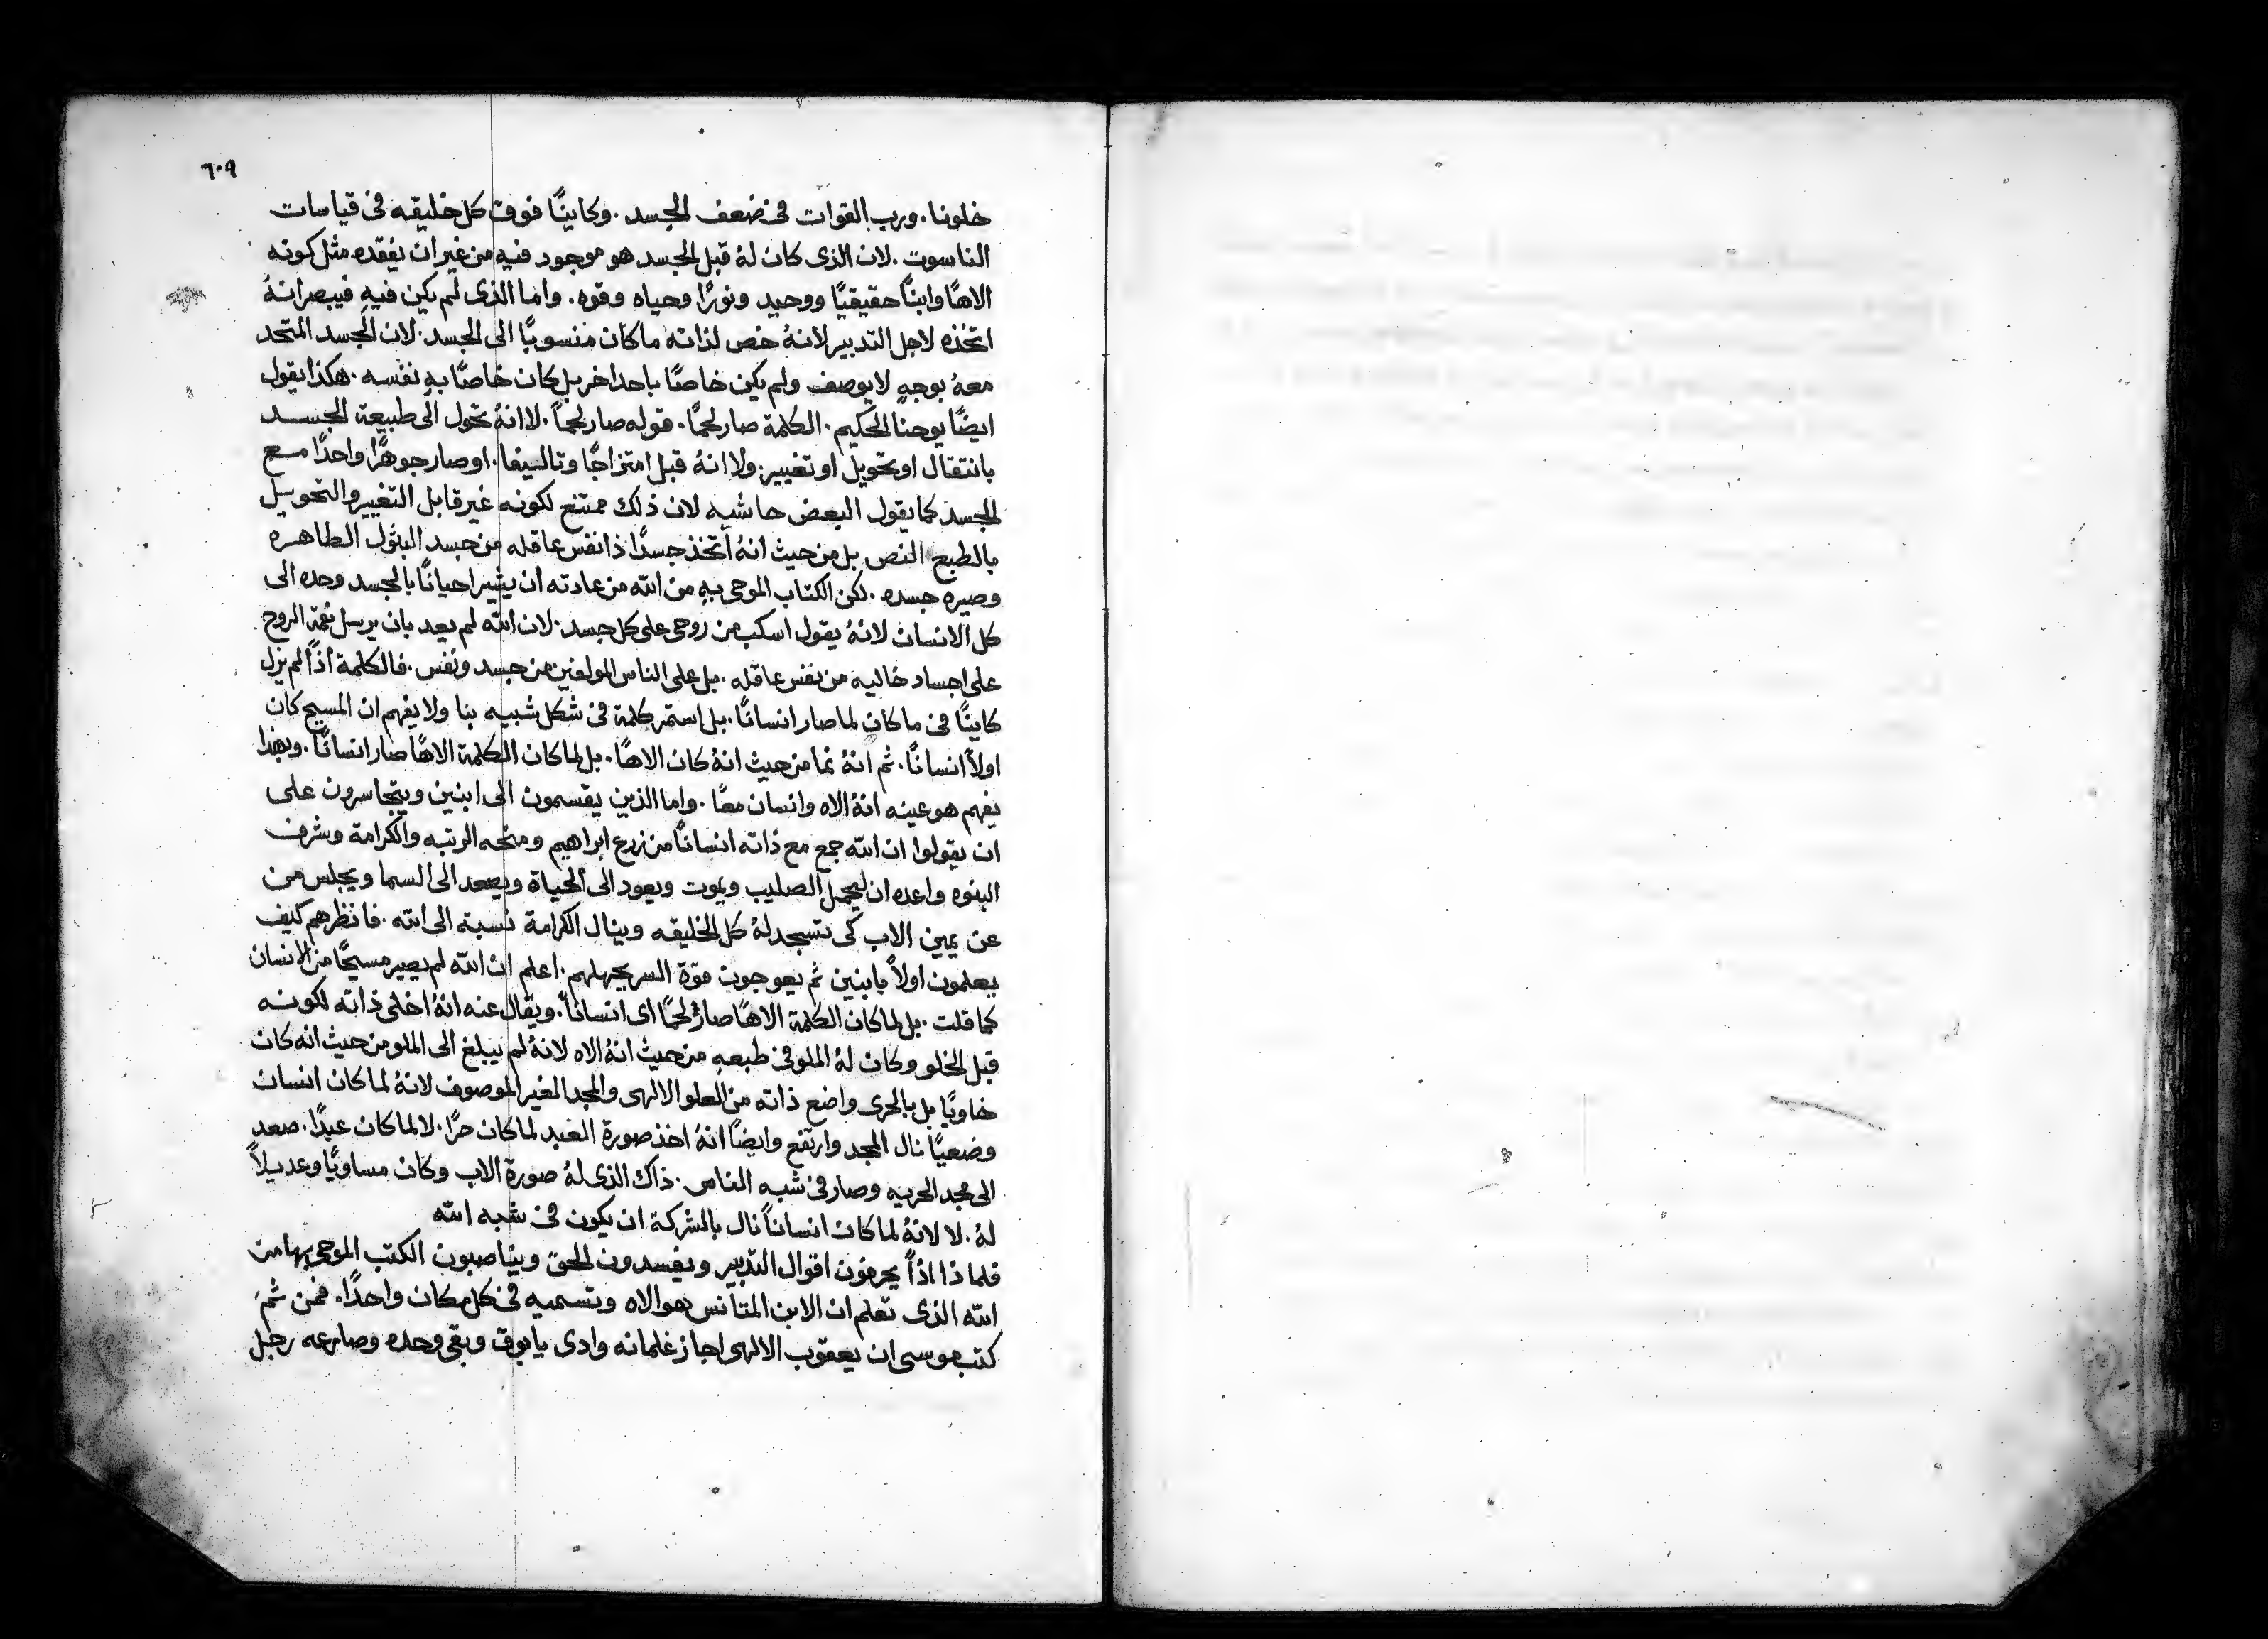 ٦٠٩
خلونا. ورب القوات فى ضعف الجسد. وكاينًا فوق كل خليقه فى قياسات
الناسوت. لان الذى كان لهُ قبل الجسد هو موجود فيهِ من غير ان يفقده. مثل كونه
الاهًا وابنًا حقيقيًا ووحيد ونورًا وحياه وقوه. واما الذى لم يكن فيهِ فيبصر انهُ
اتخذه لاجل التدبير لانهُ خص لذاته ما كان منسوبًا الى الجسد. لان الجسد المتحد
معهُ بوجهٍ لا يوصف ولم يكن خاصًا باحد اخر بل كان خاصًا بهِ نفسه. هكذا يقول
ايضًا يوحنا الحكيم. الكلمة صار لحمًا. قوله صار لحمًا. لا انهُ تحول الى طبيعة الجسد
بانتقال او تحويل او تغيير. ولا انهُ قبل امتزاجًا وتاليفا. او صار جوهرًا واحدًا مع
الجسد كما يقول البعض حاشيه لان ذلك ممتنع لكونه غير قابل التغيير والتحويل
بالطبع النص بل من حيث انهُ اتخذ جسدًا ذا نفس عاقله من جسد البتول الطاهره
وصيره جسده. لكن الكتاب الموحى بهِ من الله من عادته ان يشير احيانًا بالجسد وحده الى
كل الانسان لانهُ يقول اسكب من روحى على كل جسد. لان الله لم يعد بان يرسل نعمة الروح
على اجساد خاليه من نفس عاقله. بل على الناس المولفين من جسد ونفس. فالكلمة اذًا لم يزل
كاينًا فى ما كان لما صار انسانًا. بل استمر كلمة فى شكل شبيه بنا ولا يفهم ان المسيح كان
اولاً انسانًا. ثم انهُ نما من حيث انهُ كان الاهًا. بل لما كان الكلمة الاهًا صار انسانًا. وبهذا
يفهم هو عينه انهُ الاه وانسان معًا. واما الذين يقسمون الى ابنين ويتجاسرون على
ان يقولوا ان الله جمع مع ذاته انسانًا من زرع ابراهيم ومنحه الرتبه والكرامة وشرف
البنوه واعده ان يحمل الصليب ويموت ويعود الى الحياة ويصعد الى السما ويجلس من
عن يمين الاب كى تسجد لهُ كل الخليقه وينال الكرامة نسبته الى الله. فانظرهم كيف
يعلمون اولاً بابنين ثم يعوجون قوة السر بجهلهم. اعلم ان الله لم يصير مسيحًا من الانسان
كما قلت. بل لما كان الكلمة الاهًا صار لحمًا اى انسانًا. ويقال عنه انهُ اخلى ذاته لكونه
قبل الخلو وكان لهُ الملو فى طبعهِ من حيث انهُ الاه لانهُ لم يبلغ الى الملو من حيث انه كان
خاويًا بل بالحرى واضع ذاته من العلو الالهى والمجد الغير الموصوف لانهُ لما كان انسان
وضعيًا نال المجد وارتفع وايضًا انهُ اخذ صورة العبد لما كان حرًا. لا لما كان عبدًا. صعد
الى مجد الحريه وصار فى شبه الناس. ذاك الذى لهُ صورة الاب وكان مساويًا وعديلاً
لهُ. لا لانهُ لما كان انسانًا نال بالشركة ان يكون فى شبه الله
فلماذا اذًا يحرفون اقوال التدبير ويفسدون الحق ويناصبون الكتب الموحى بها من
الله الذى تعلم ان الابن المتانس هو الاه وتسميه فى كل مكان واحدًا. فمن ثم
كتب موسى ان يعقوب الالهى اجاز غلمانه وادى يابوق وبقى وحده وصارعه رجل